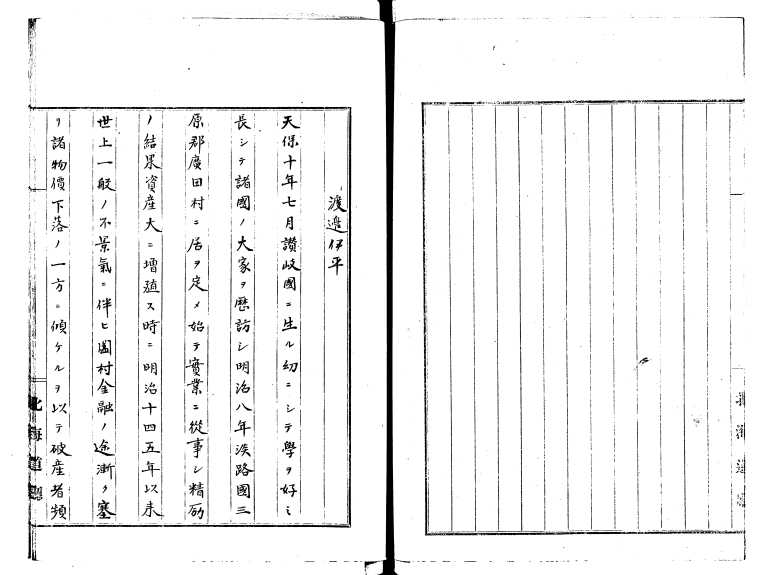 渡邉伊平
天保十年七月讃岐國ニ生ル幼ニシテ學ヲ好ミ
長シテ諸國ノ大家ヲ歴訪シ明治八年淡路國三
原郡廣田村ニ居ヲ定メ始テ實業ニ從事シ精励
ノ結果資産大ニ増殖ス時ニ明治十四五年以来
世上一般ノ不景氣ニ伴ヒ闔村金融ノ途漸ク塞
リ諸物價下落ノ一方ニ傾ケルヲ以テ破産者頻
北海道廳